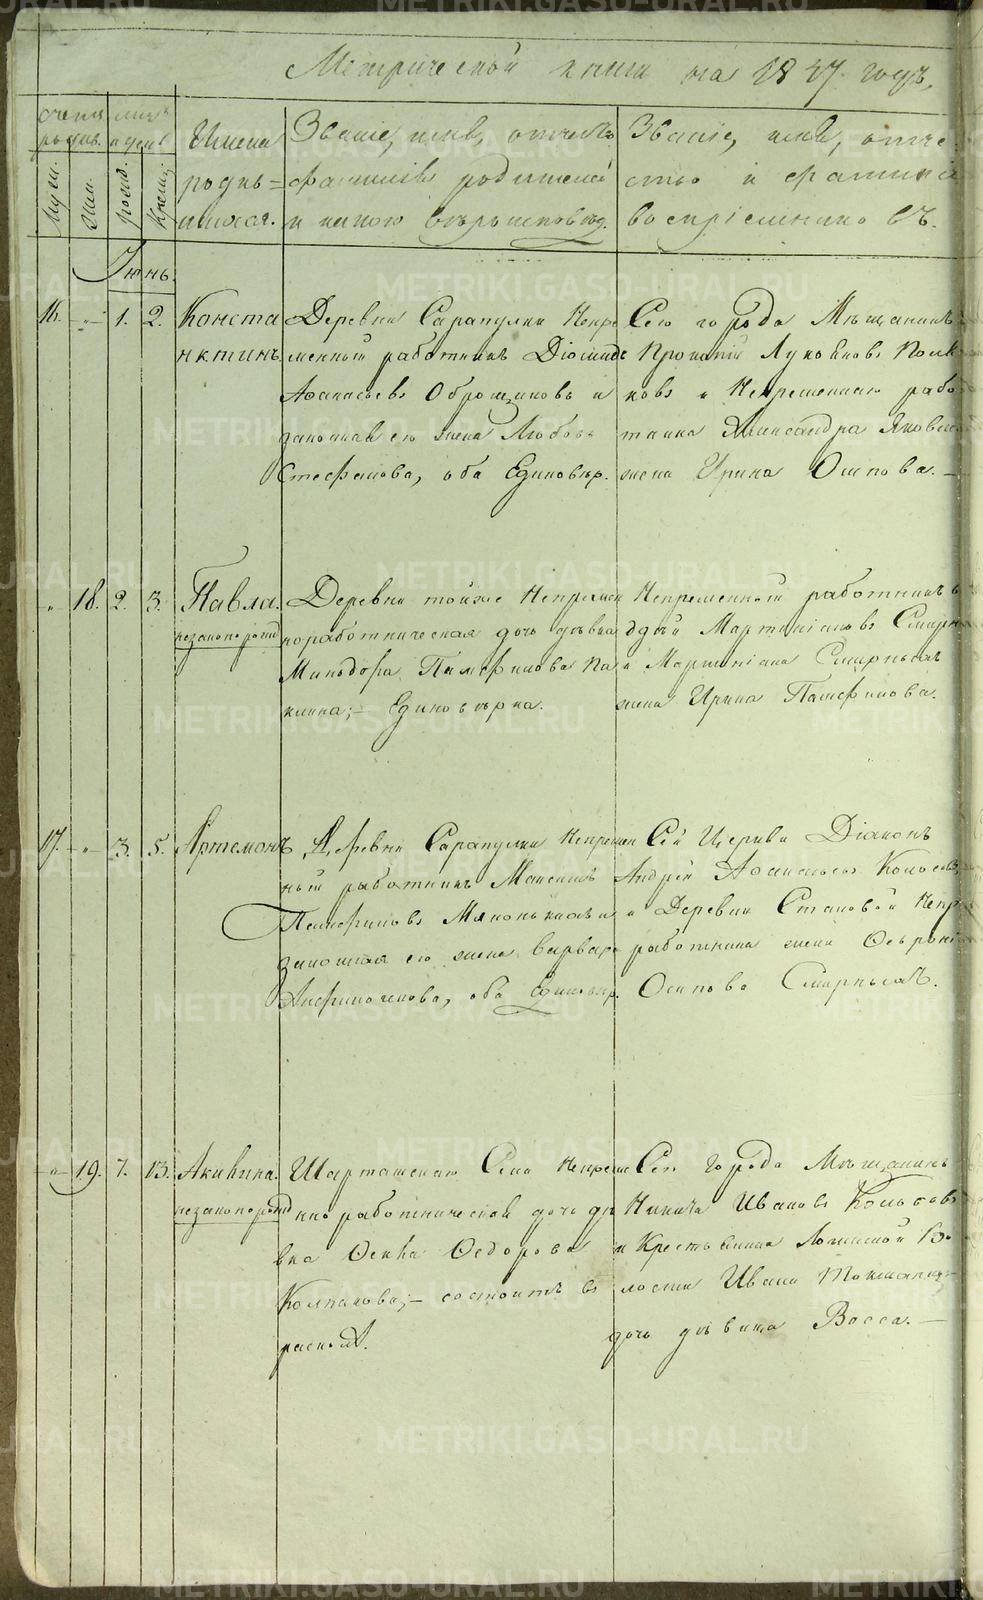 Метрической книги на 1847. годъ,
Счетъ родив. Муж. Жен.
мцъ и день рожд. крещ.
Имена родив=шихся.
Званіе, имя, отчеств
фамилія родителей
и какого вѣроисповѣд.
Званіе, имя, отче
ство и фамилія
воспріемниковъ.
Іюнь.
16. „ 1. 2.
Конста
нктинъ
Деревни Сарапулки Непре
менный работникъ Діомидъ
Афанасьевъ Оброщиковъ и
законная его жена Любовь
Стефанова, оба Единовѣр.
Сего города Мѣщанинъ
Прокопій Лукояновъ
ковъ и Непременнаго рабо
тника Александра Яковлева
жена Ирина Осипова.
„ 18. 2. 3.
Павла.
незаконорожд
Деревни тойже Непремен
норабочническая дочь дѣвка
Минодора Памфилова Па
кина; Единовѣрка.
Непременной работникъ
Мартиніановъ Смирн
и Мартиніана Смирныхъ
жена Ирина Памфилова.
17. „ 3. 5.
Артемонъ
Деревни Сарапулки Непремен
ный работникъ Максимъ
Памфиловъ и
законная его жена Варвара
оба Единовѣр.
Сей Церкви Діаконъ
Андрей Афанасьевъ
и Деревни Становой Непр.
работника жена
Осипова Смирныхъ.
„ 19. 7. 13.
Акилина.
незаконорожд
Шарташскаго Села Непреме
ннорабочническая дочь дѣ
вка Фекла Федорова
Колпакова; состоитъ въ
расколѣ.
Сего города Мѣщанинъ
Никита Ивановъ
и Крестьянина Во
лости Ивана
дочь дѣвица Васса.
METRIKI.GASO-URAL.RU